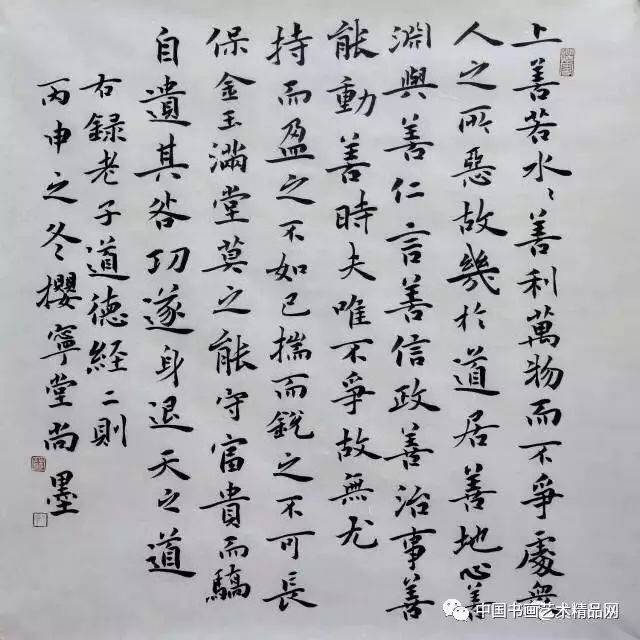 上善若水〻善利萬物而不爭處眾
人之所惡故幾於道居善地心善
淵與善仁言善信政善治事善
能動善時夫唯不爭故無尤
持而盈之不如已揣而銳之不可長
保金玉滿堂莫之能守富貴而驕
自遺其咎功遂身退天之道
右録老子道德経二則
丙申之冬攖寧堂尚墨
中国书画艺术精品网